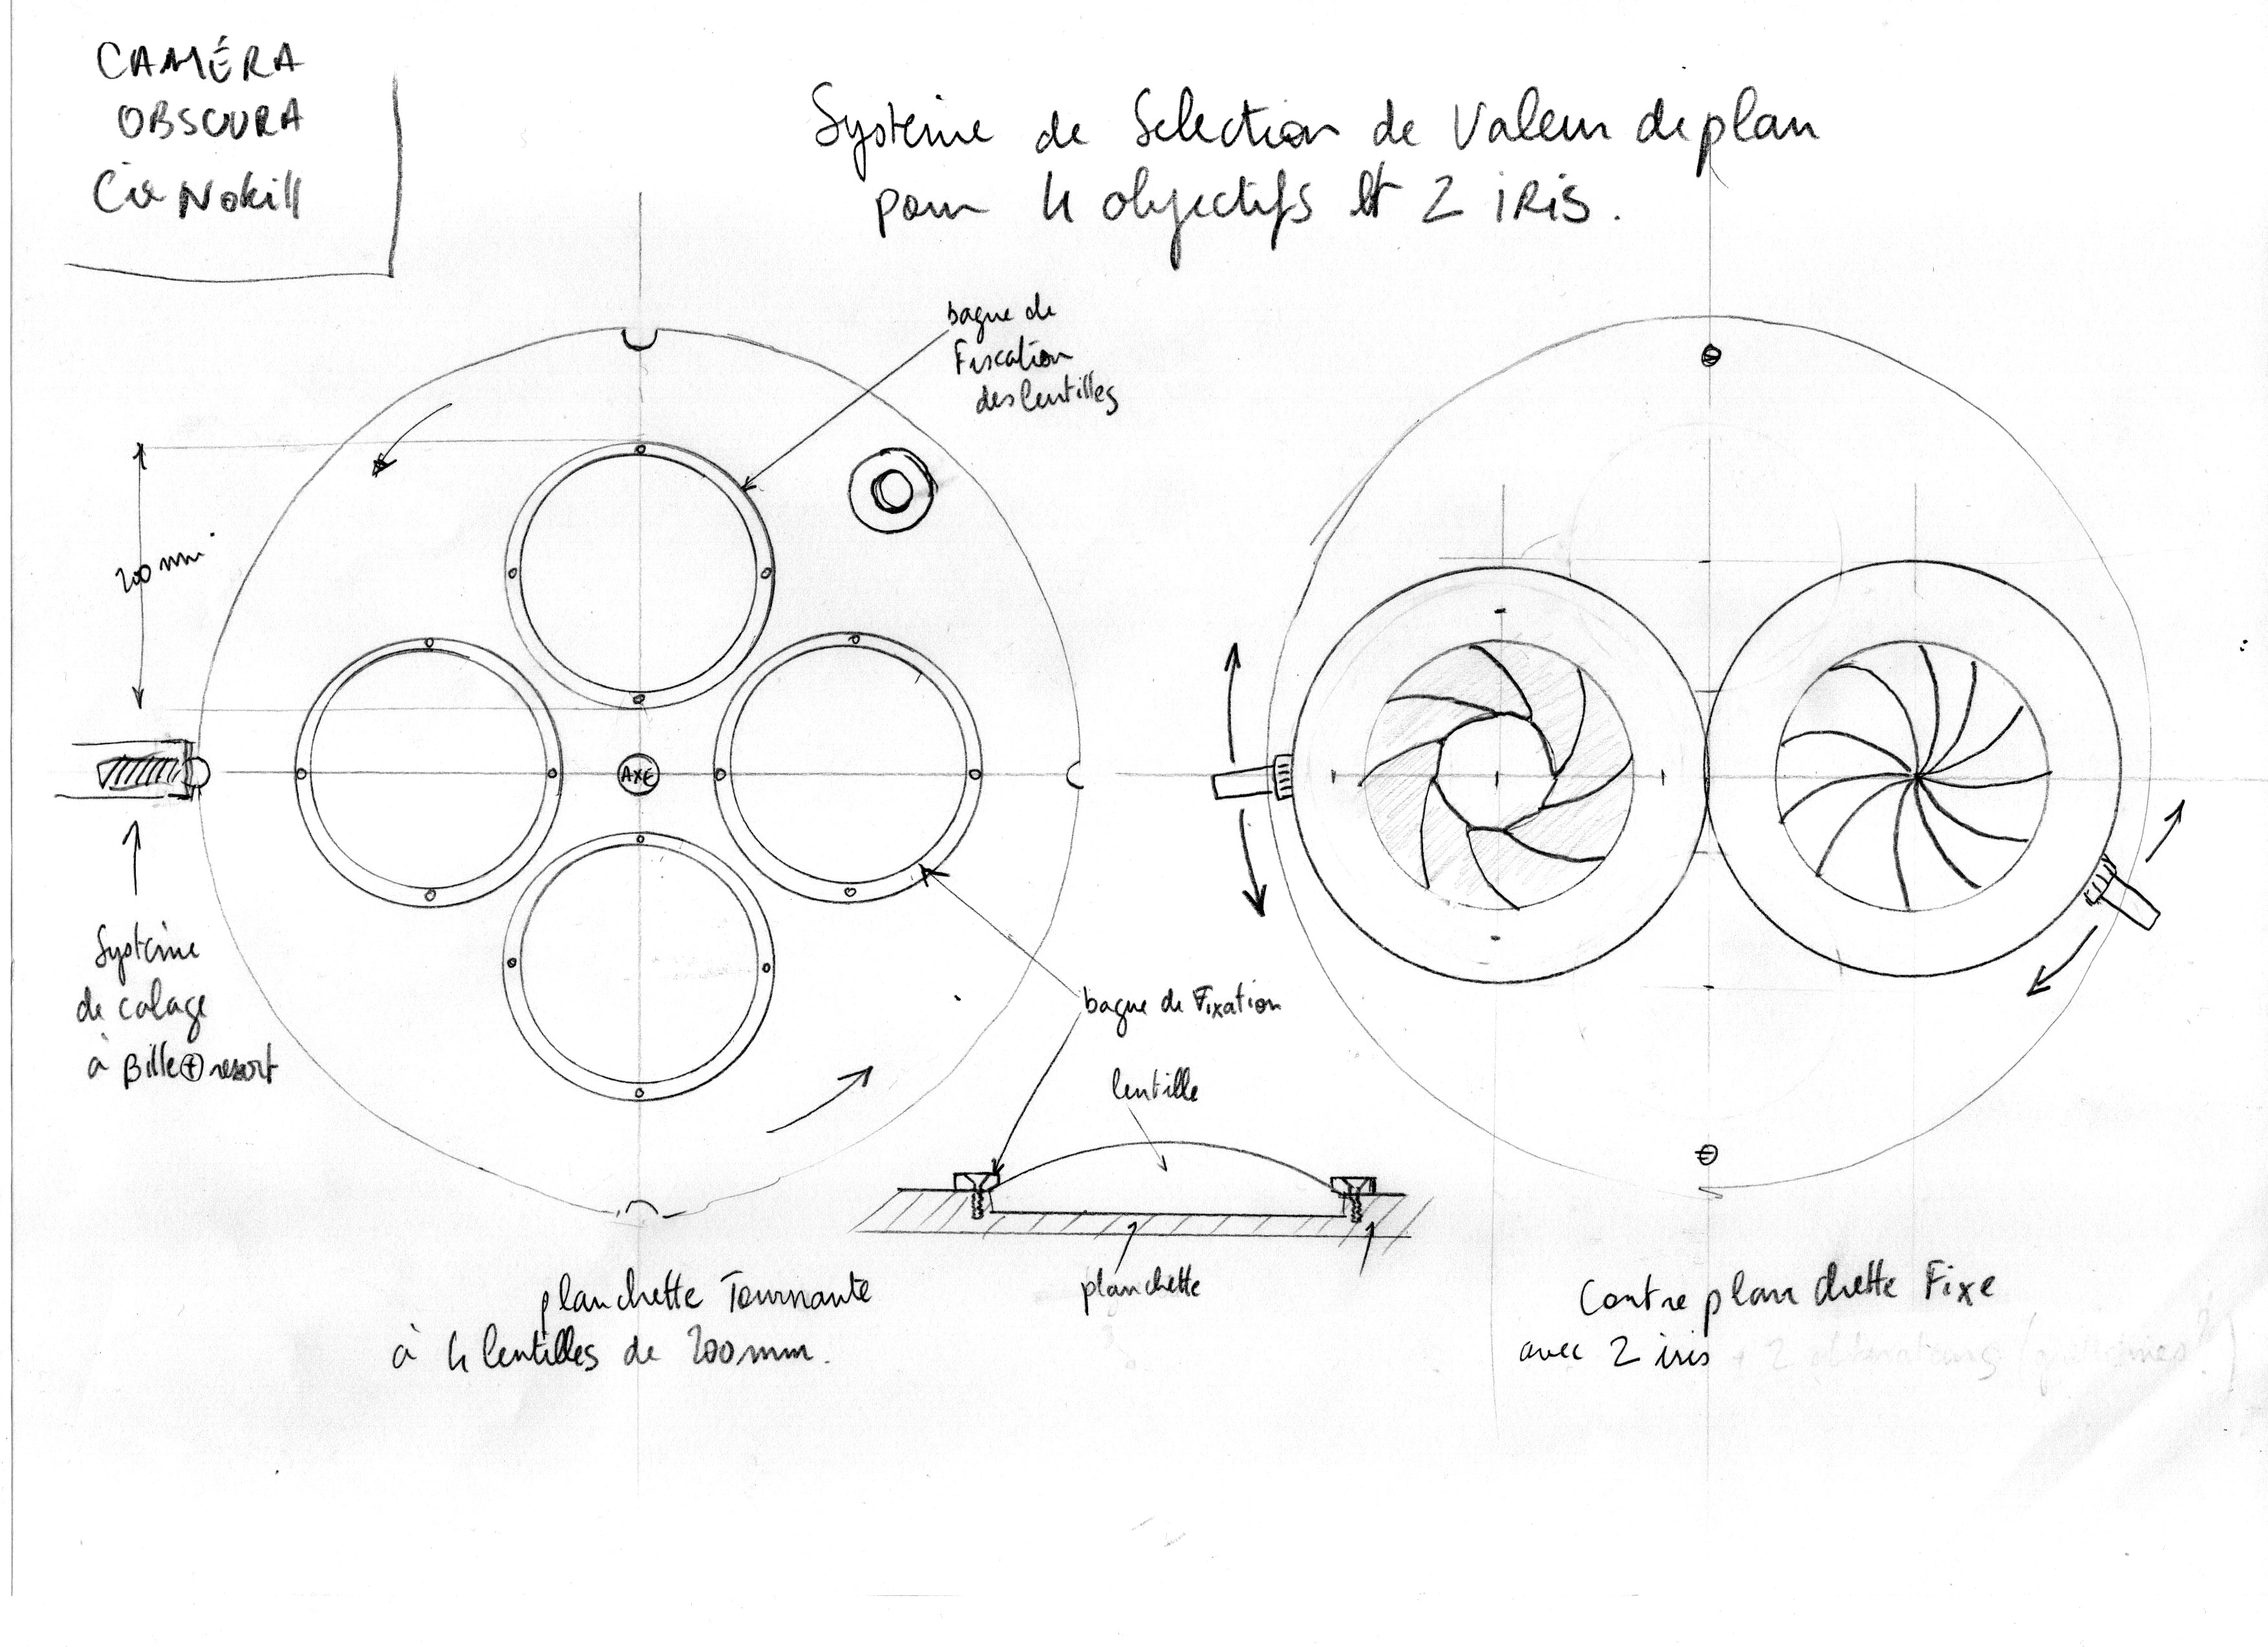 CAMÉRA
OBSCURA
Cie Nokill
Système de Selection de Valeur de plan
pour 4 objectifs et 2 iRiS.
bague de
Fixation
des lentilles
200 mm
AXE
Système
de calage
à Bille + ressort
bague de Fixation
lentille
planchette
planchette Tournante
à 4 lentilles de 200mm.
Contre planchette Fixe
avec 2 iris + 2